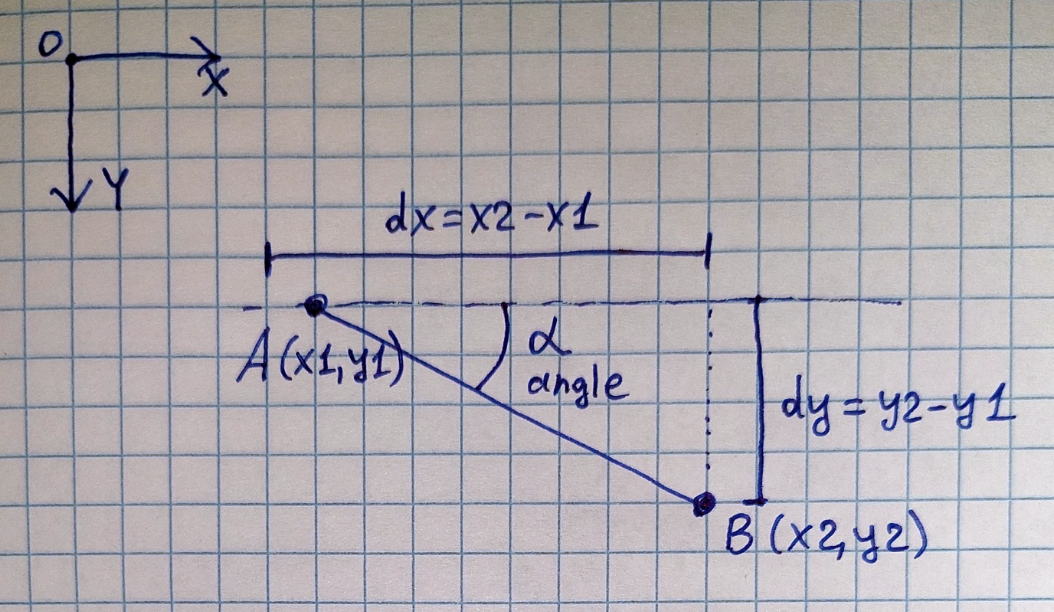 O
X
Y
dx=x2-x1
A(x1,y1)
α
angle
dy=y2-y1
B(x2,y2)